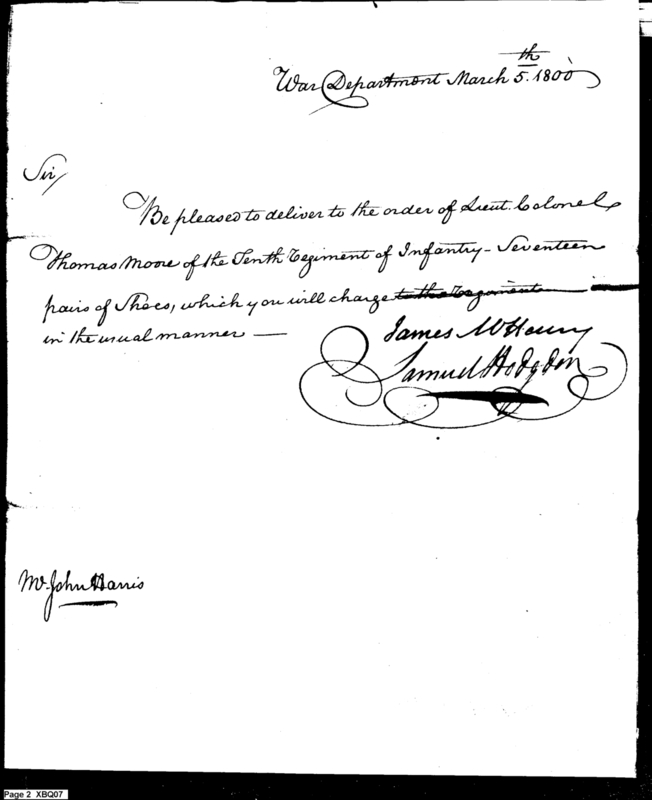 War Department March 5.th 1800
Sir,
Be pleased to deliver to the order of Lieut. Colonel
Thomas Moore of the Tenth Regiment of Infantry - Seventeen
pairs of Shoes, which you will charge to the Regiment
in the usual manner —
James McHenry
Samuel Hodgdon
Mr. John Harris
Page 2 XBQ07